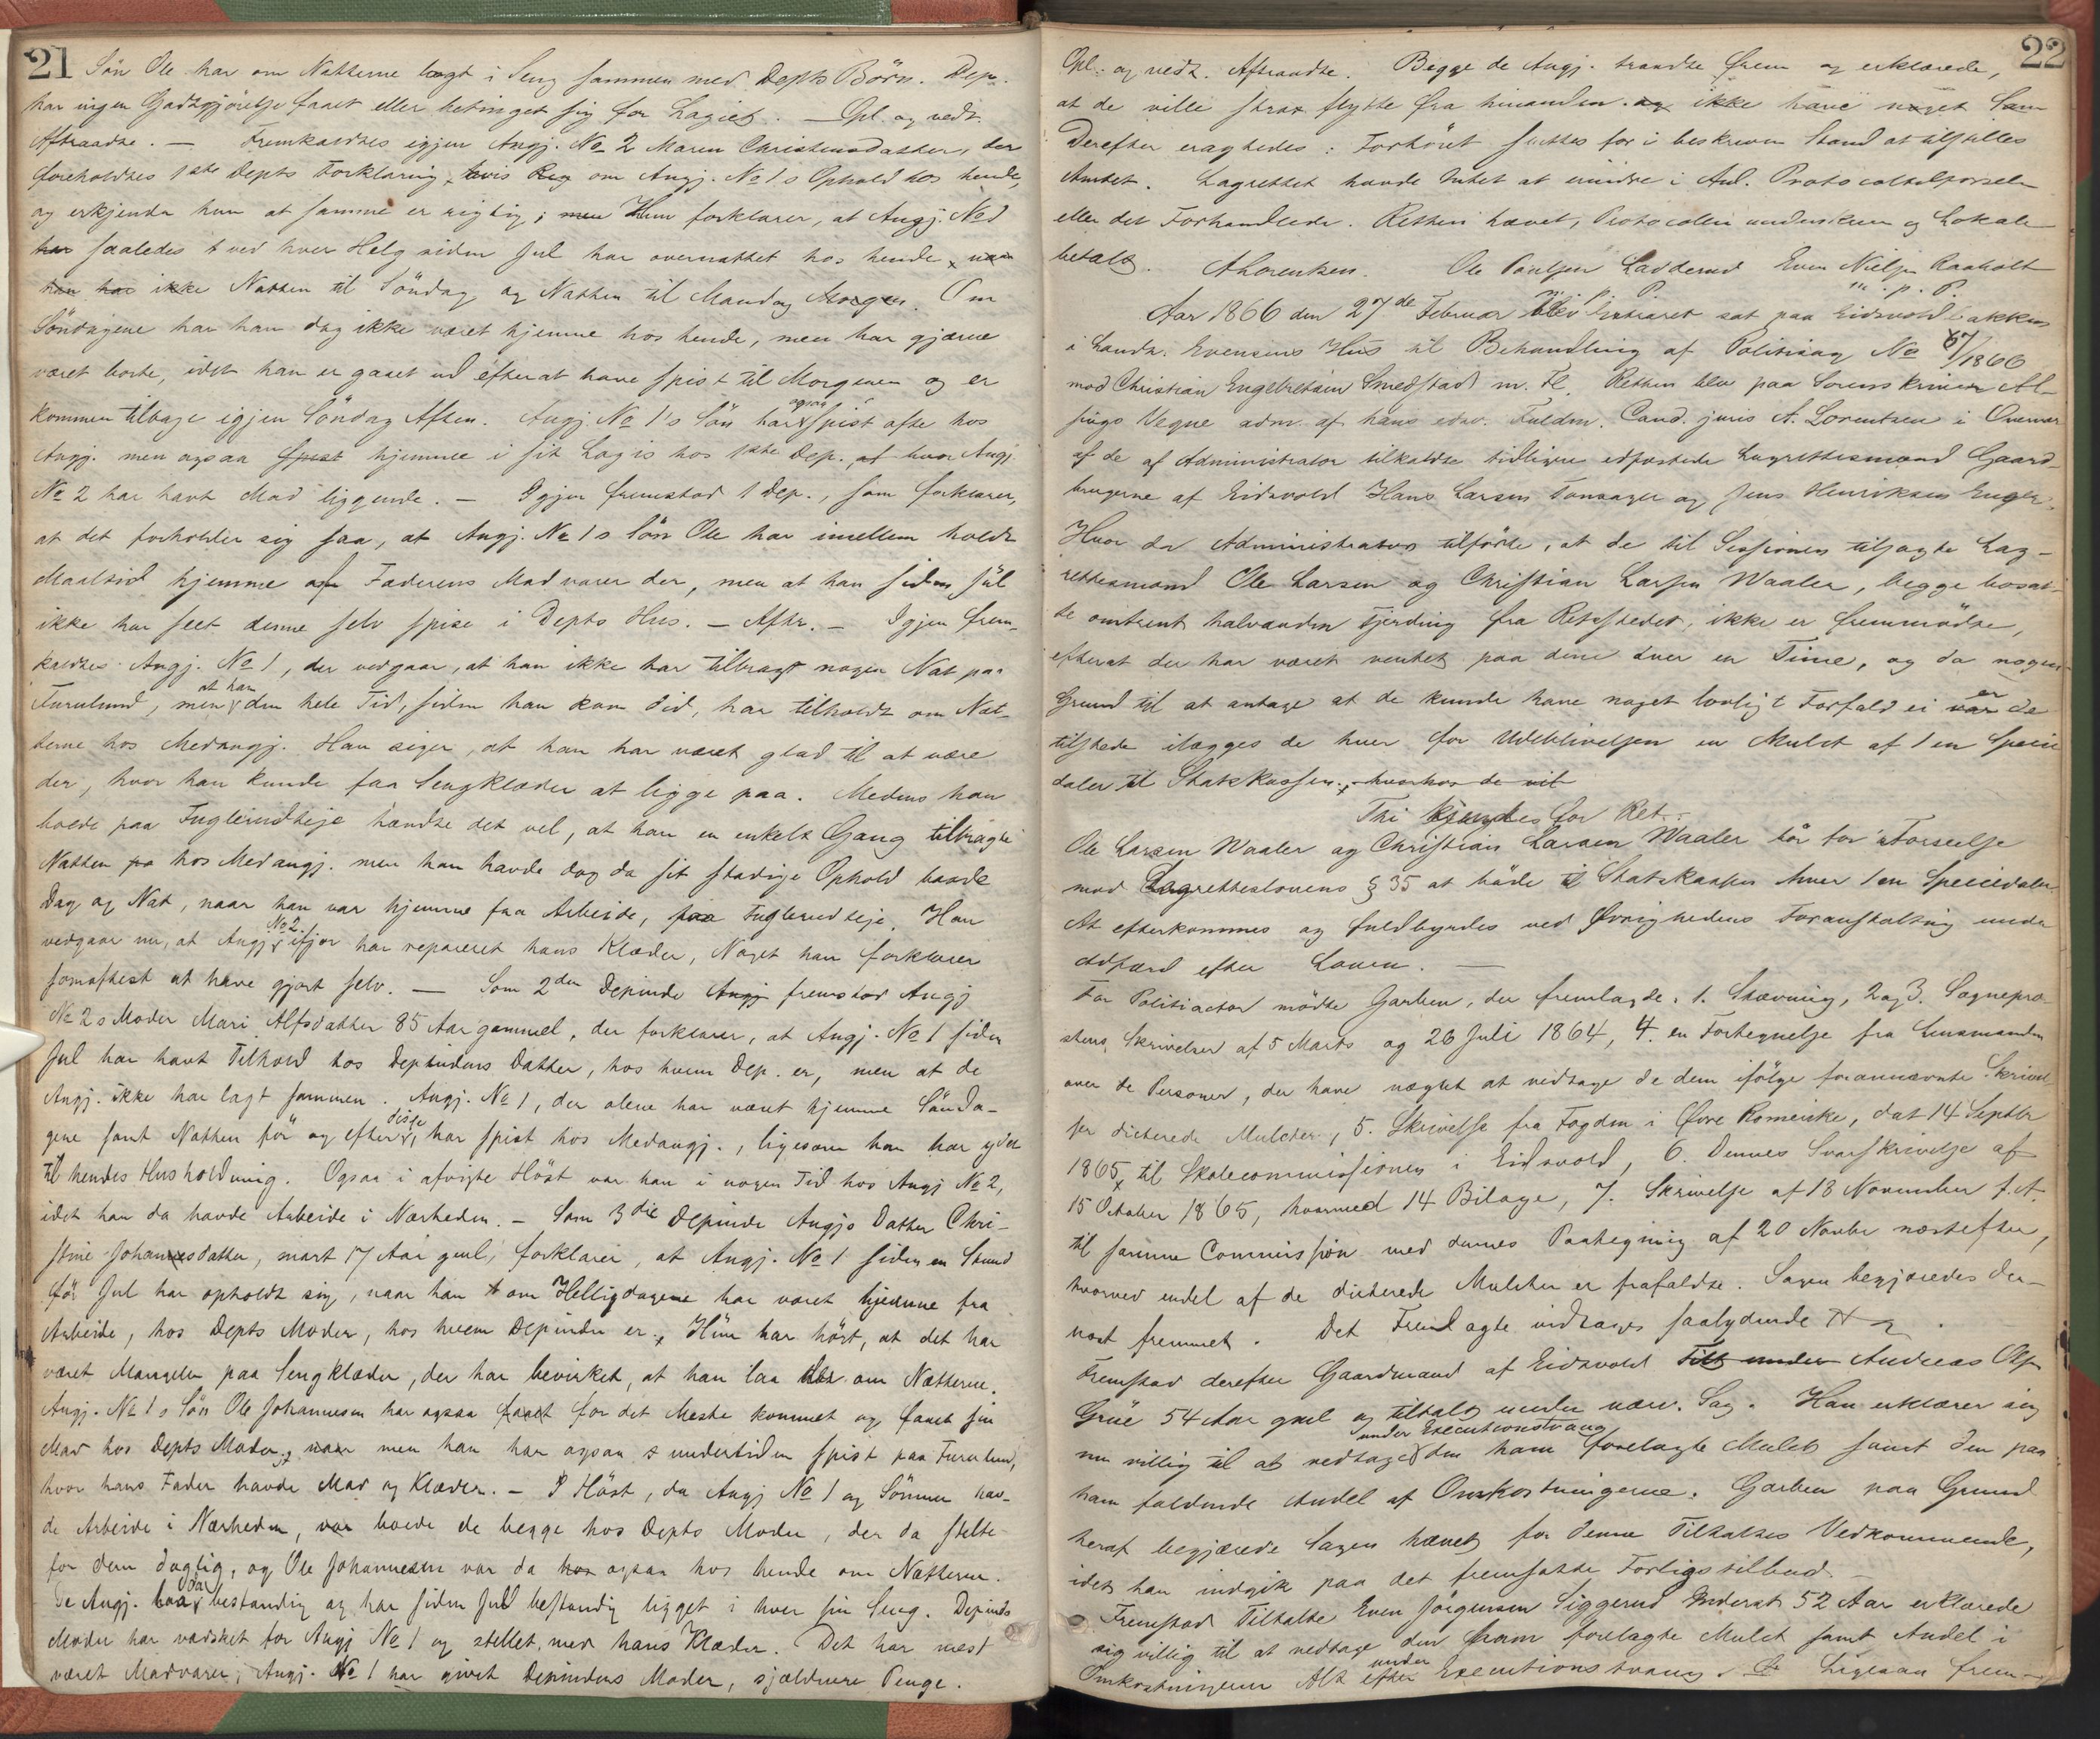 21
Søn Ole har om Nætterne lagt i Seng sammen med Depts Børn. Dep.
har ingen Godtgjørelse faaet eller betinget sig for Logiet. — Opl. og vedt.
Aftraadte. — Fremkaldtes igjen Angj. No 2 Maren Christensdatter, der
foreholdtes 1ste Depts Forklaring om Angj. No 1s Ophold hos hende,
og erkjender hun at samme er rigtig; men Hun forklarer, at Angj. No 1
har saaledes ved hver Helg siden Jul har overnattet hos hende
han har ikke Natten til Søndag og Natten til Mandag Morgen. Om
Søndagene har han dog ikke været hjemme hos hende, men har gjerne
været borte, idet han er gaaet ud efterat have spist til Morgenen og er
kommen tilbage igjen Søndag Aften. Angj. No 1's Søn har ogsaa spist ofte hos
Angj. men ogsaa spist hjemme i sit Logis hos 1ste Dep., hvor Angj.
No 2 har havt Mad liggende. — Igjen fremstod 1 Dep., som forklarer,
at det forholder sig saa, at Angj. No 1s Søn Ole har imellem holdt
Maaltid hjemme af Faderens Madvarer der, men at han siden Jul
ikke har seet denne selv spise i Depts Hus. — Aftr. — Igjen frem-
kaldtes Angj. No 1, der vedgaar, at han ikke har tilbragt nogen Nat paa
Furulund, men at han den hele Tid, siden han kom did, har tilholdt om Næt-
terne hos Medangj. Han siger, at han har været glad til at være
der, hvor han kunde faa Sengklæder at ligge paa. Medens han
boede paa Fuglerudeje hændte det vel, at han en enkelt Gang tilbragte
Natten hos Medangj. men han havde dog da sit stadige Ophold baade
Dag og Nat, naar han var hjemme fra Arbeide, paa Fuglerudeje. Han
vedgaar nu, at Angj. No 2. ifjor har repareret hans Klæder, Noget han forklarer
somoftest at have gjort selv. — Som 2den Depinde Angj fremstod Angj
No 2s Moder Mari Alfsdatter 85 Aar gammel, der forklarer, at Angj. No 1 siden
Jul har havt Tilhold hos Depindens Datter, hos hvem Dep. er, men at de
Angj. ikke har lagt sammen. Angj. No 1, der alene har været hjemme Sønda-
gene samt Natten før og efter disse, har spist hos Medangj., ligesom han har ydet
til hendes Husholdning. Ogsaa i afvigte Høst var han i nogen Tid hos Angj No 2,
idet han da havde Arbeide i Nærheden. — Som 3die Depinde Angjs Datter Chri-
stine Johannesdatter, snart 17 Aar gml, forklarer, at Angj. No 1 siden en Stund
før Jul har opholdt sig, naar han om Helligdagene har været hjemme fra
Arbeide, hos Depts Moder, hos hvem Depinden er. Hun har hørt, at det har
været Mangelen paa Sengklæder, der har bevirket, at han laa der om Nætterne.
Angj. No 1s Søn Ole Johannesen har ogsaa faaet for det Meste kommet og faaet sin
Mad hos Depts Moder, men han har ogsaa undertiden spist paa Furulund,
hvor hans Fader havde Mad og Klæder. — I Høst, da Angj No 1 og Sønnen hav-
de Arbeide i Nærheden, var boede de begge hos Depts Moder, der da stelte
for dem daglig, og Ole Johannesen var da hos ogsaa hos hende om Nætterne.
De Angj. laa da bestandig og har siden Jul bestandig ligget i hver sin Seng. Depindens
Moder har vadsket for Angj No 1 og stellet med hans Klæder. Det har mest
været Madvarer, Angj. No 1 har givet Depindens Moder, sjældnere Penge.
22
Opl. og vedt. Aftraadte. Begge de Angj. traadte frem og erklærede,
at de ville strax flytte fra hinanden. og ikke have noget Sam
Derefter eragtedes: Forhøret sluttes for i beskreven Stand at tilstilles
Amtet. Lagrettet havde Intet at erindre i Anl. Protocoltilførselen
eller det Forhandlede. Retten hævet, Protocollen underskreven og Lokale
betalt. A Lorentzen. Ole Paulsen Ladderud Even Nielsen Raaholt
m. p. P. m. p. P.
Aar 1866 den 27de Februar blev Extraret sat paa Eidsvoldsbakken
i Landh. Evensens Hus til Behandling af Politisag No 67/1866
mod Christian Engebretsen Smedstad m. Fl. Retten blev paa Sorenskriver
Vegne adm. af hans edsv. Fuldm. Cand. juris A. Lorentzen i Overvær
af de af Administrator tilkaldte tidligere edfæstede Lagrettesmænd Gaard-
brugerne af Eidsvold Hans Larsen Tonsager og Jens Henriksen Enger.
Hvor da Administrator tilførte, at de til Sessionen tilsagte Lag-
rettesmænd Ole Larsen og Christian Larsen Waaler, begge bosat-
te omtrent halvanden Fjerding fra Retsstedet, ikke er fremmødte,
efterat der har været ventet paa dem over en Time, og da nogen
Grund til at antage at de kunde have noget lovligt Forfald ei er de
tilstede ilægges de hver for Udeblivelsen en Mulct af 1 en Specie
daler til Statskassen, hvorhos de vil
Thi kjendes for Ret:
Ole Larsen Waaler og Christian Larsen Waaler bør for Forseelse
mod Lagretteslovens § 35 at bøde til Statskassen hver 1 en Speciedaler
At efterkommes og fuldbyrdes ved Øvrighedens Foranstaltning under
Adfærd efter Loven. —
For Politiactor mødte Garben, der fremlagde. 1. Stævning, 2 og 3. Sognepræ-
stens Skrivelser af 5 Marts og 26 Juli 1864, 4. en Fortegnelse fra Lensmanden
over de Personer, der have nægtet at vedtage de dem ifølge forannævnte Skrivel
ser dicterede Mulcter, 5. Skrivelse fra Fogden i Øvre Romerike, dat 14 Septbr
1865, til Skolecommissionen i Eidsvold, 6. Dennes Svarskrivelse af
15 October 1865, hvormed 14 Bilage, 7. Skrivelse af 18 November f. A.
til samme Commission med dennes Paategning af 20 Novbr næstefter,
hvorved endel af de dicterede Mulcter er frafaldte. Sagen begjæredes der-
næst fremmet. Det Fremlagte indtages saalydende
Fremstod derefter Gaardmand af Eidsvold Andreas Olsen
Grue 54 Aar gml og tiltalt under nærv. Sag. Han erklærer sig
nu villig til at vedtage under Executionstvang den ham forelagte Mulct samt den paa
ham faldende Andel af Omkostningerne. Garben paa Grund
heraf begjærede Sagen hævet for denne Tiltaltes Vedkommende,
idet han indgik paa det fremsatte Forligstilbud. —
Fremstod Tiltalte Even Jørgensen Siggerud Inderst 52 Aar erklærede
sig villig til at vedtage den ham forelagte Mulct samt Andel i
Omkostningerne Alt under Executionstvang. Ligesaa frem-